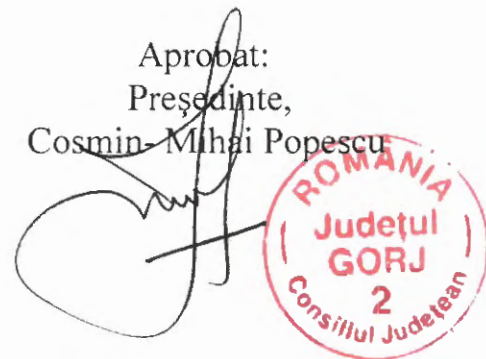 Aprobat:
Președinte,
Cosmin- Mihai Popescu
ROMÂNIA
Județul
GORJ
2
Consiliul Județean